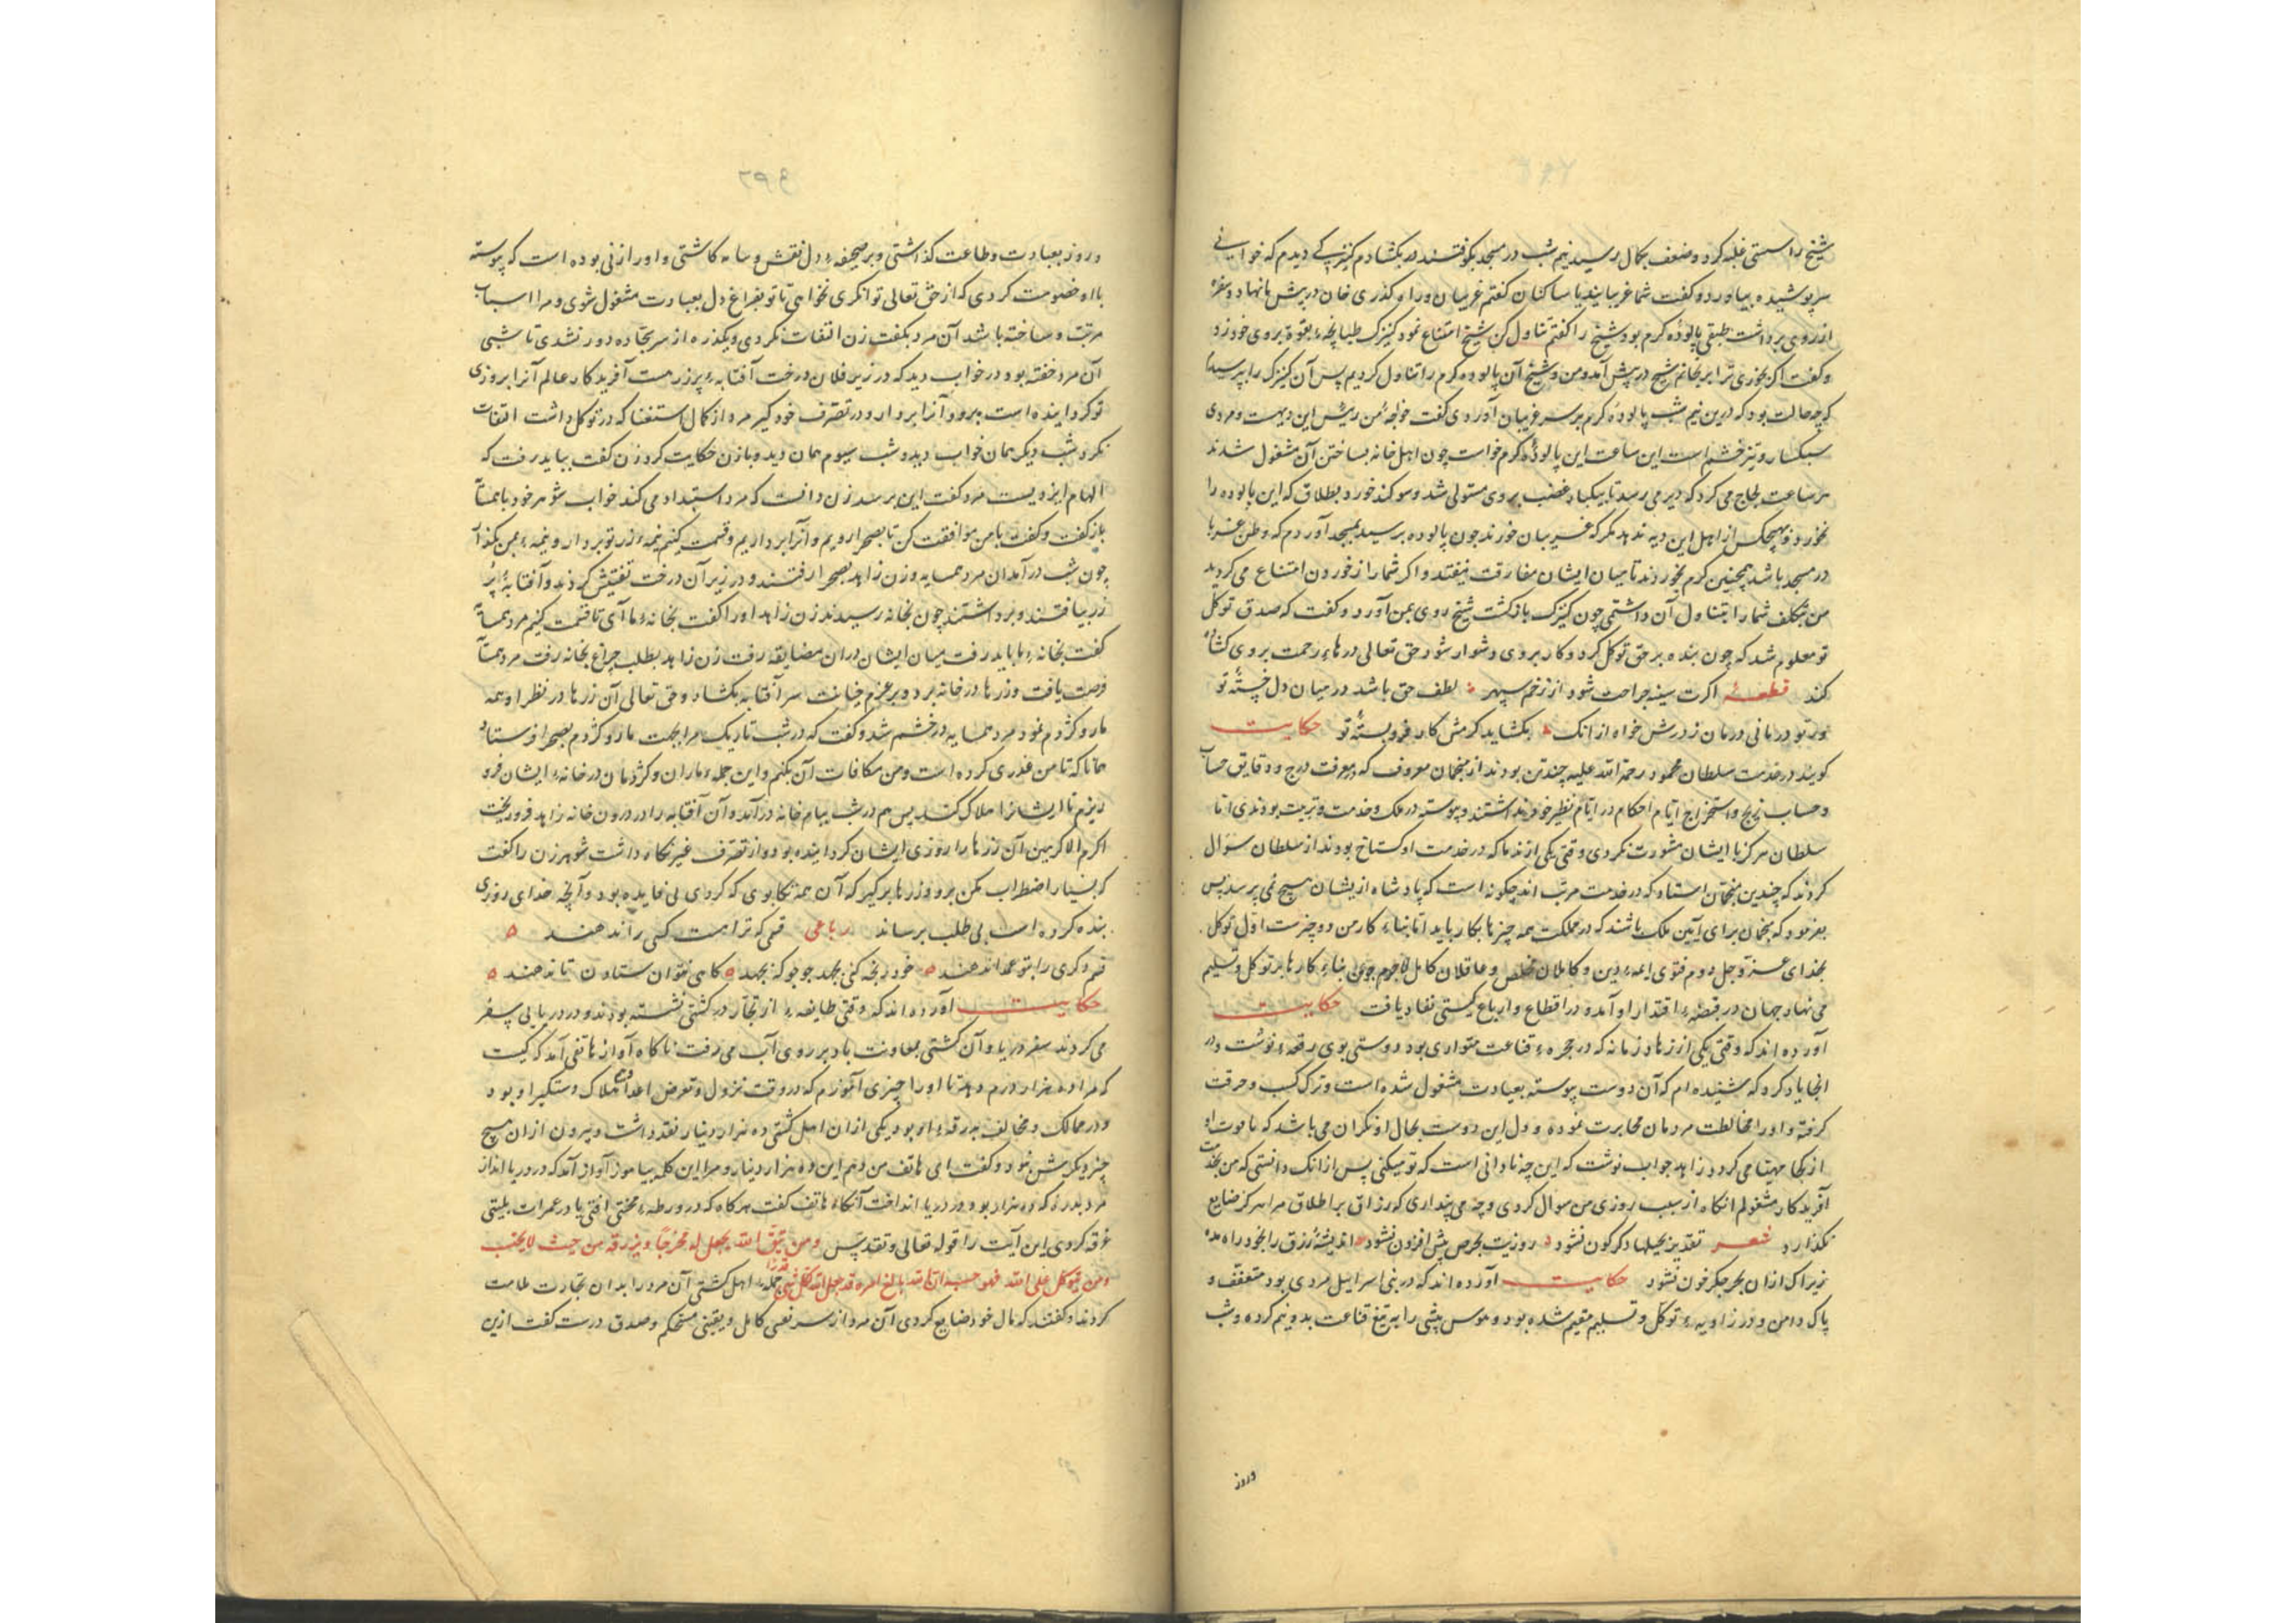 شیخ را سستی غلبه کرد و ضعف بکمال رسید نیم شب در مسجد بکوفتند در بکشادم کنیزکی دیدم که خوانی
سرپوشیده بیاورد و کفت شما غریبانید یا ساکنان کفتم غریبان و راه کذری خان در پیش ما نهاد و سفره
از روی برداشت طبقی پالوده کرم بود شیخ را کفتم تناول کن شیخ امتناع نمود کنیزک طبانچه بقوة بروی خود زد
و کفت اکر نخوری ترا برنجانم شیخ در پیش آمد و من و شیخ آن پالوده کرم را تناول کردیم پس آن کنیزک را بپرسیدم
که چه حالت بود که درین نیم شب پالوده کرم بر سر غریبان آوردی کفت خواجه من رئیس این دیهست و مردی
سبکسار و تیز خشم است این ساعت این پالوده کرم خواست چون اهل خانه بساختن آن مشغول شدند
هر ساعت لجاج می کرد که دیر می رسد تا بیکبار غضب بروی مستولی شد و سوکند خورد بطلاق که این پالوده را
نخورد و بهیچکس از اهل این دیه ندهد مکر که غریبان خورند چون پالوده برسید بمسجد آوردم که وطن غربا
در مسجد باشد همچنین کرم بخورند تا میان ایشان مفارقت نیفتد و اکر شما از خوردن امتناع می کردید
من بتکلف شما را بتناول آن داشتمی چون کنیزک بازکشت شیخ روی بمن آورد و کفت که صدق توکل
تو معلوم شد که چون بنده بر حق توکل کرد و کار بروی دشوار شود حق تعالی درهاء رحمت بروی کشاده
کند قطعه اکرت سینه جراحت شود از زخم سپهر لطف حق باشد در میان دل خسته تو
ور تو درمانی درمان ز درش خواه از انک بکشاید کرمش کار فروبسته تو حکایت
کویند در خدمت سلطان محمود رحمة الله علیه چندتن بودند از منجمان معروف که در معرفت درج و دقایق حساب
و حساب زیج و استخراج ایام احکام در ایام نظیر خود نداشتند و پیوسته در ملک و خدمت و تربیت بودندی اما
سلطان هرکز با ایشان مشورت نکردی وقتی یکی از ندما که در خدمت او کستاخ بودند از سلطان سؤال
کردند که چندین منجمان استاد که در خدمت مرتب اند چکونه است که پادشاه از یشان هیچ نمی پرسد پس
بفرمود که منجمان برای آیین ملک باشند که در مملکت همه چیزها بکار باید اما بناء کار من دو چیزست اول توکل
بخدای عز و جل دوم فتوی ایمه دین و کاملان مخلص و عاقلان کامل لاجرم چون بناء کارها بر توکل و تسلیم
می نهاد جهان در قبضه اقتدار او آمد و در اقطاع و ارباع کیتی نفاذ یافت حکایت
آورده اند که وقتی یکی از زهاد زمانه که در حجره قناعت متواری بود دوستی بوی رقعه نوشت و در
انجا یاد کرد که شنیده ام که آن دوست پیوسته بعبادت مشغول شده است و ترک کسب و حرفت
کرفته و او را مخالطت مردمان نموده و دل این دوست بحال او نکران می باشد که تا قوت او
از کجا مهیا می کردد زاهد جواب نوشت که این چه نادانی است که تو میکنی پس از انک دانستی که من بخدمت
آفریدکار مشغولم انکاه از سبب روزی من سوال کردی و چه می پنداری که رزاق بر اطلاق مرا هرکز ضایع
نکذارد شعر تقدیر بحیلها دکرکون نشود روزیت بحرص بیش افزون نشود اندیشه رزق را بخود راه مده
زیرا که ازان بجز جکر خون نشود حکایت آورده اند که در بنی اسرائیل مردی بود متعفف و
پاک دامن و در زاویه توکل و تسلیم مقیم شده بود و هوس بیشی را به تیغ قناعت بدو نیم کرده و شب
وروز
و روز بعبادت و طاعت کذاشتی و بر صحیفه دل نقش کاشتی و او را زنی بوده است که پیوسته
با او خصومت کردی که از حق تعالی توانکری نخواهی تا تو بفراغ دل بعبادت مشغول شوی و مرا اسباب
مرتب و ساخته باشد آن مرد بکفت زن التفات نکردی و یکذره از سر سجاده دور نشدی تا شبی
آن مرد خفته بود در خواب دید که در زیر فلان درخت آفتابه پرزرست آفریدکار عالم آنرا بروزی
تو کردانیده است برو و آنرا بردار و در تصرف خود کیر مرد از کمال استغنا که در توکل داشت التفات
نکرد شب دیکر همان خواب دید و شب سیوم همان دید و با زن حکایت کرد زن کفت بباید رفت که
الهام ایزدیست مرد کفت این برسد زن دانست که مرد استبداد می کند خواب شوهر خود با همسایه
بازکفت و کفت با من موافقت کن تا بصحرا رویم و آنرا برداریم و قسمت کنیم نیمه زر تو بردار و نیمه بمن بکذار
چون شب درآمد آن مرد همسایه و زن زاهد بصحرا رفتند و در زیر آن درخت تفتیش کردند و آفتابه پر
زر بیافتند و برداشتند چون بخانه رسیدند زن زاهد او را کفت بخانه ما آی تا قسمت کنیم مرد همسایه
کفت بخانه ما باید رفت میان ایشان دران مضایقه رفت زن زاهد بطلب چراغ بخانه رفت مرد همسایه
فرصت یافت و زرها در خانه برد و بر عزم خیانت سر آفتابه بکشاد و حق تعالی آن زرها در نظر او همه
مار و کژدم نمود مرد همسایه در خشم شد و کفت که در شب تاریک مرا بجهت مار و کژدم بصحرا فرستاد
همانا که تا من غدری کرده است و من مکافات آن بکنم و این جمله ماران و کژدمان در خانه ایشان فرو
ریزم تا ایشانرا هلاک کند پس هم در شب ببام خانه درآمد و آن آفتابه را در درون خانه زاهد فرو ریخت
اکرم الاکرمین آن زرها را روزی ایشان کردانیده بود و از تصرف غیر نکاه داشت شوهر زن را کفت
که بسیار اضطراب مکن برو و زرها برکیر که آن همه تکاپوی که کردی بی فایده بود و آنچه خدای روزی
بنده کرده است بی طلب برساند رباعی قسمی که تراست کس را ندهند
قسم دکری را بتو عمدا ندهند خود رنجه کنی بجهد جو جو که بجهد کاهی نتوان ستادن تا ندهند
حکایت آورده اند که وقتی طایفه از تجار در کشتی نشسته بودند و در دریایی سفر
می کردند سفر دریا و آن کشتی بمعاونت باد بر روی آب می رفت ناکاه آواز هاتفی آمد که کیست
که مرا ده هزار درم دهد تا او را چیزی آموزم که در وقت نزول و تعرض هلاک دستکیر او بود
و در ممالک و مخالف بدرقه او بود یکی از ان اهل کشتی ده هزار دینار نقد داشت و بیرون از ان هیچ
چیز دیکرش نبود و کفت ای هاتف من دهم این ده هزار دینار و مرا این کلمه بیاموز آواز آمد که در دریا انداز
مرد بدره که ده هزار بود در دریا انداخت آنکاه هاتف کفت هر کاه که در ورطه محنتی افتی یا در غمرات بلیتی
غرقه کردی این آیت را قوله تعالی و تقدس ومن یتق الله یجعل له مخرجا ویرزقه من حیث لا یحتسب
ومن یتوکل علی الله فهو حسبه ان الله بالغ امره قد جعل الله لکل شیء قدرا جمله اهل کشتی آن مرد را بدان تجارت ملامت
کردند و کفتند که مال خود ضایع کردی آن مرد از سر نفسی کامل و یقینی مستحکم و صدق درست کفت ازین